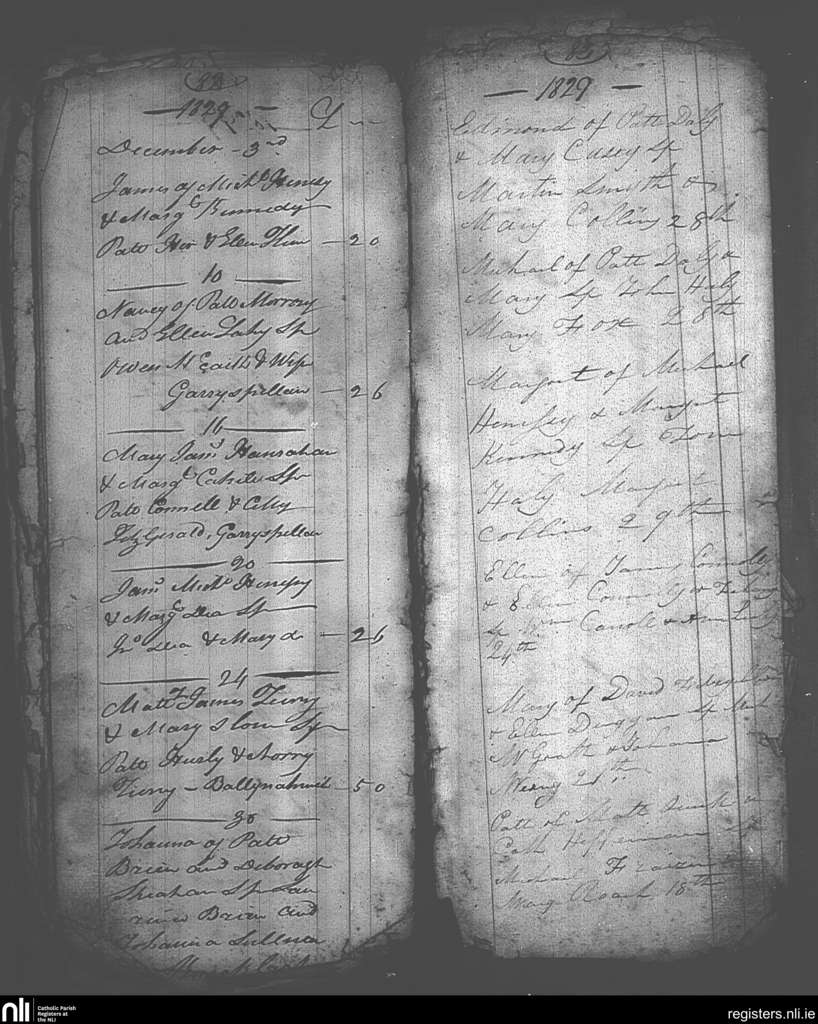 82
— 1829 —
December - 3rd
James of Mich.l Henesy
& Marg.t Kennedy
Patt & Ellen — 20
— 10 —
Nancy of Patt Morrosy
and Ellen Lahy Sp
Owen McGrath & Wife
Garryspillan — 26
— 16 —
Mary Jam.s Hanrahan
& Marg.t Sp
Patt Connell & Cathy
FitzGerald, Garryspillan
— 20 —
Jam.s Mich.l Henesy
& Marg.t Dea Sp
Jn.o Dea & Mary do — 26
— 24 —
Matt James Tierny
& Mary Sp
Patt Hurly & Norry
Tierny - — 50
— 30 —
Johanna of Patt
Brien and Deboragh
Sheahan Sp Lau
rence Brien and
Johanna Sullivan
83
— 1829 —
Edmond of Patt Daly
& Mary Casey Sp
Martin Smyth &
Mary Collins 28th
Michael of Patt Daly &
Mary Sp Joh Haly
Mary Fox 28th
Margaret of Michael
Henessy & Margret
Kennedy Sp Tom
Haly Margret
Collins 29th
Ellen of James Connolly
& Ellen Connolly
Sp Wm Carroll &
24th
Mary of David
& Ellen Duggan Sp Mich
McGrath & Johanna
21th
Patt of Matt
Cath Heffernan Sp
Michael
Mary Roach 18th
nli
Catholic Parish
Registers at
the NLI
registers.nli.ie